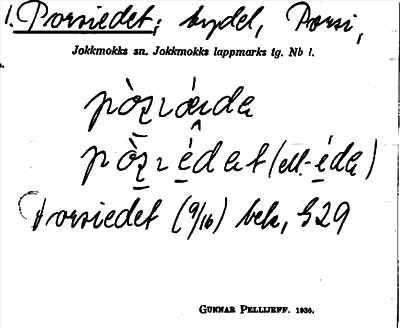 1. Porsiedet; bydel, Porsi,
Jokkmokks sn. Jokkmokks lappmarks tg. Nb l.
pòʒɩáɩda
pòʒɩédat (ell. -éda)
Porsiedet (9/16) bek, 329
GUNNAR PELLIJEFF. 1936.